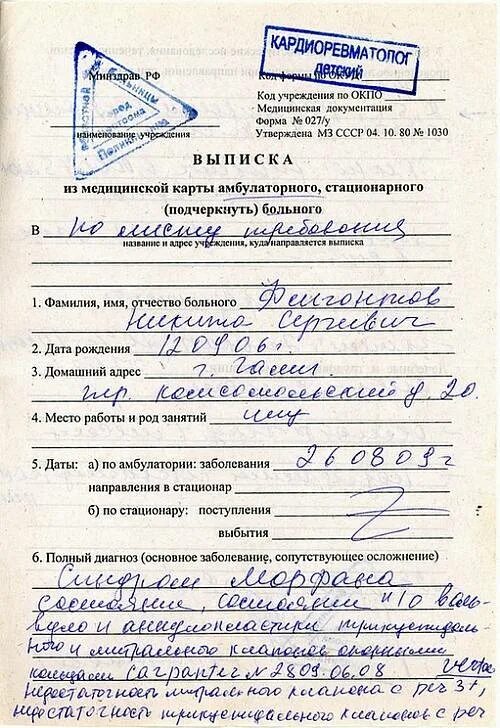 КАРДИОРЕВМАТОЛОГ
детский
Минздрав РФ
Код формы по ОКУД
Код учреждения по ОКПО
Медицинская документация
Форма № 027/у
Утверждена МЗ СССР 04. 10. 80 № 1030
больницы
город
Кострома
Поликлиника
наименование учреждения
ВЫПИСКА
из медицинской карты амбулаторного, стационарного
(подчеркнуть) больного
В по месту требования
название и адрес учреждения, куда направляется выписка
1. Фамилия, имя, отчество больного
Никита Сергеевич
2. Дата рождения 120906г.
3. Домашний адрес г. Галич
комсомольский д. 20.
4. Место работы и род занятий
5. Даты: а) по амбулатории: заболевания 260809г
направления в стационар
б) по стационару: поступления
выбытия
6. Полный диагноз (основное заболевание, сопутствующее осложнение)
Синдром Морфана
состояние, состояние п/о
и аннулопластики трикуспидаль-
ного и митрального клапанов опорными
кольцами Carpantier N 2809.06.08.
недостаточность митрального клапана с рег 3+,
недостаточность трикуспидального клапана с рег